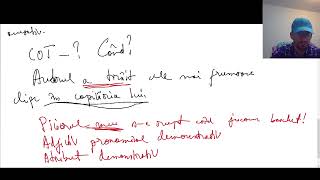 CDT -? Când?
Autorul a trăit cele mai frumoase
clipe în copilăria lui.
Piciorul s-a rupt când jucam baschet!
Adjectiv pronominal demonstrativ
Atribut demonstrativ